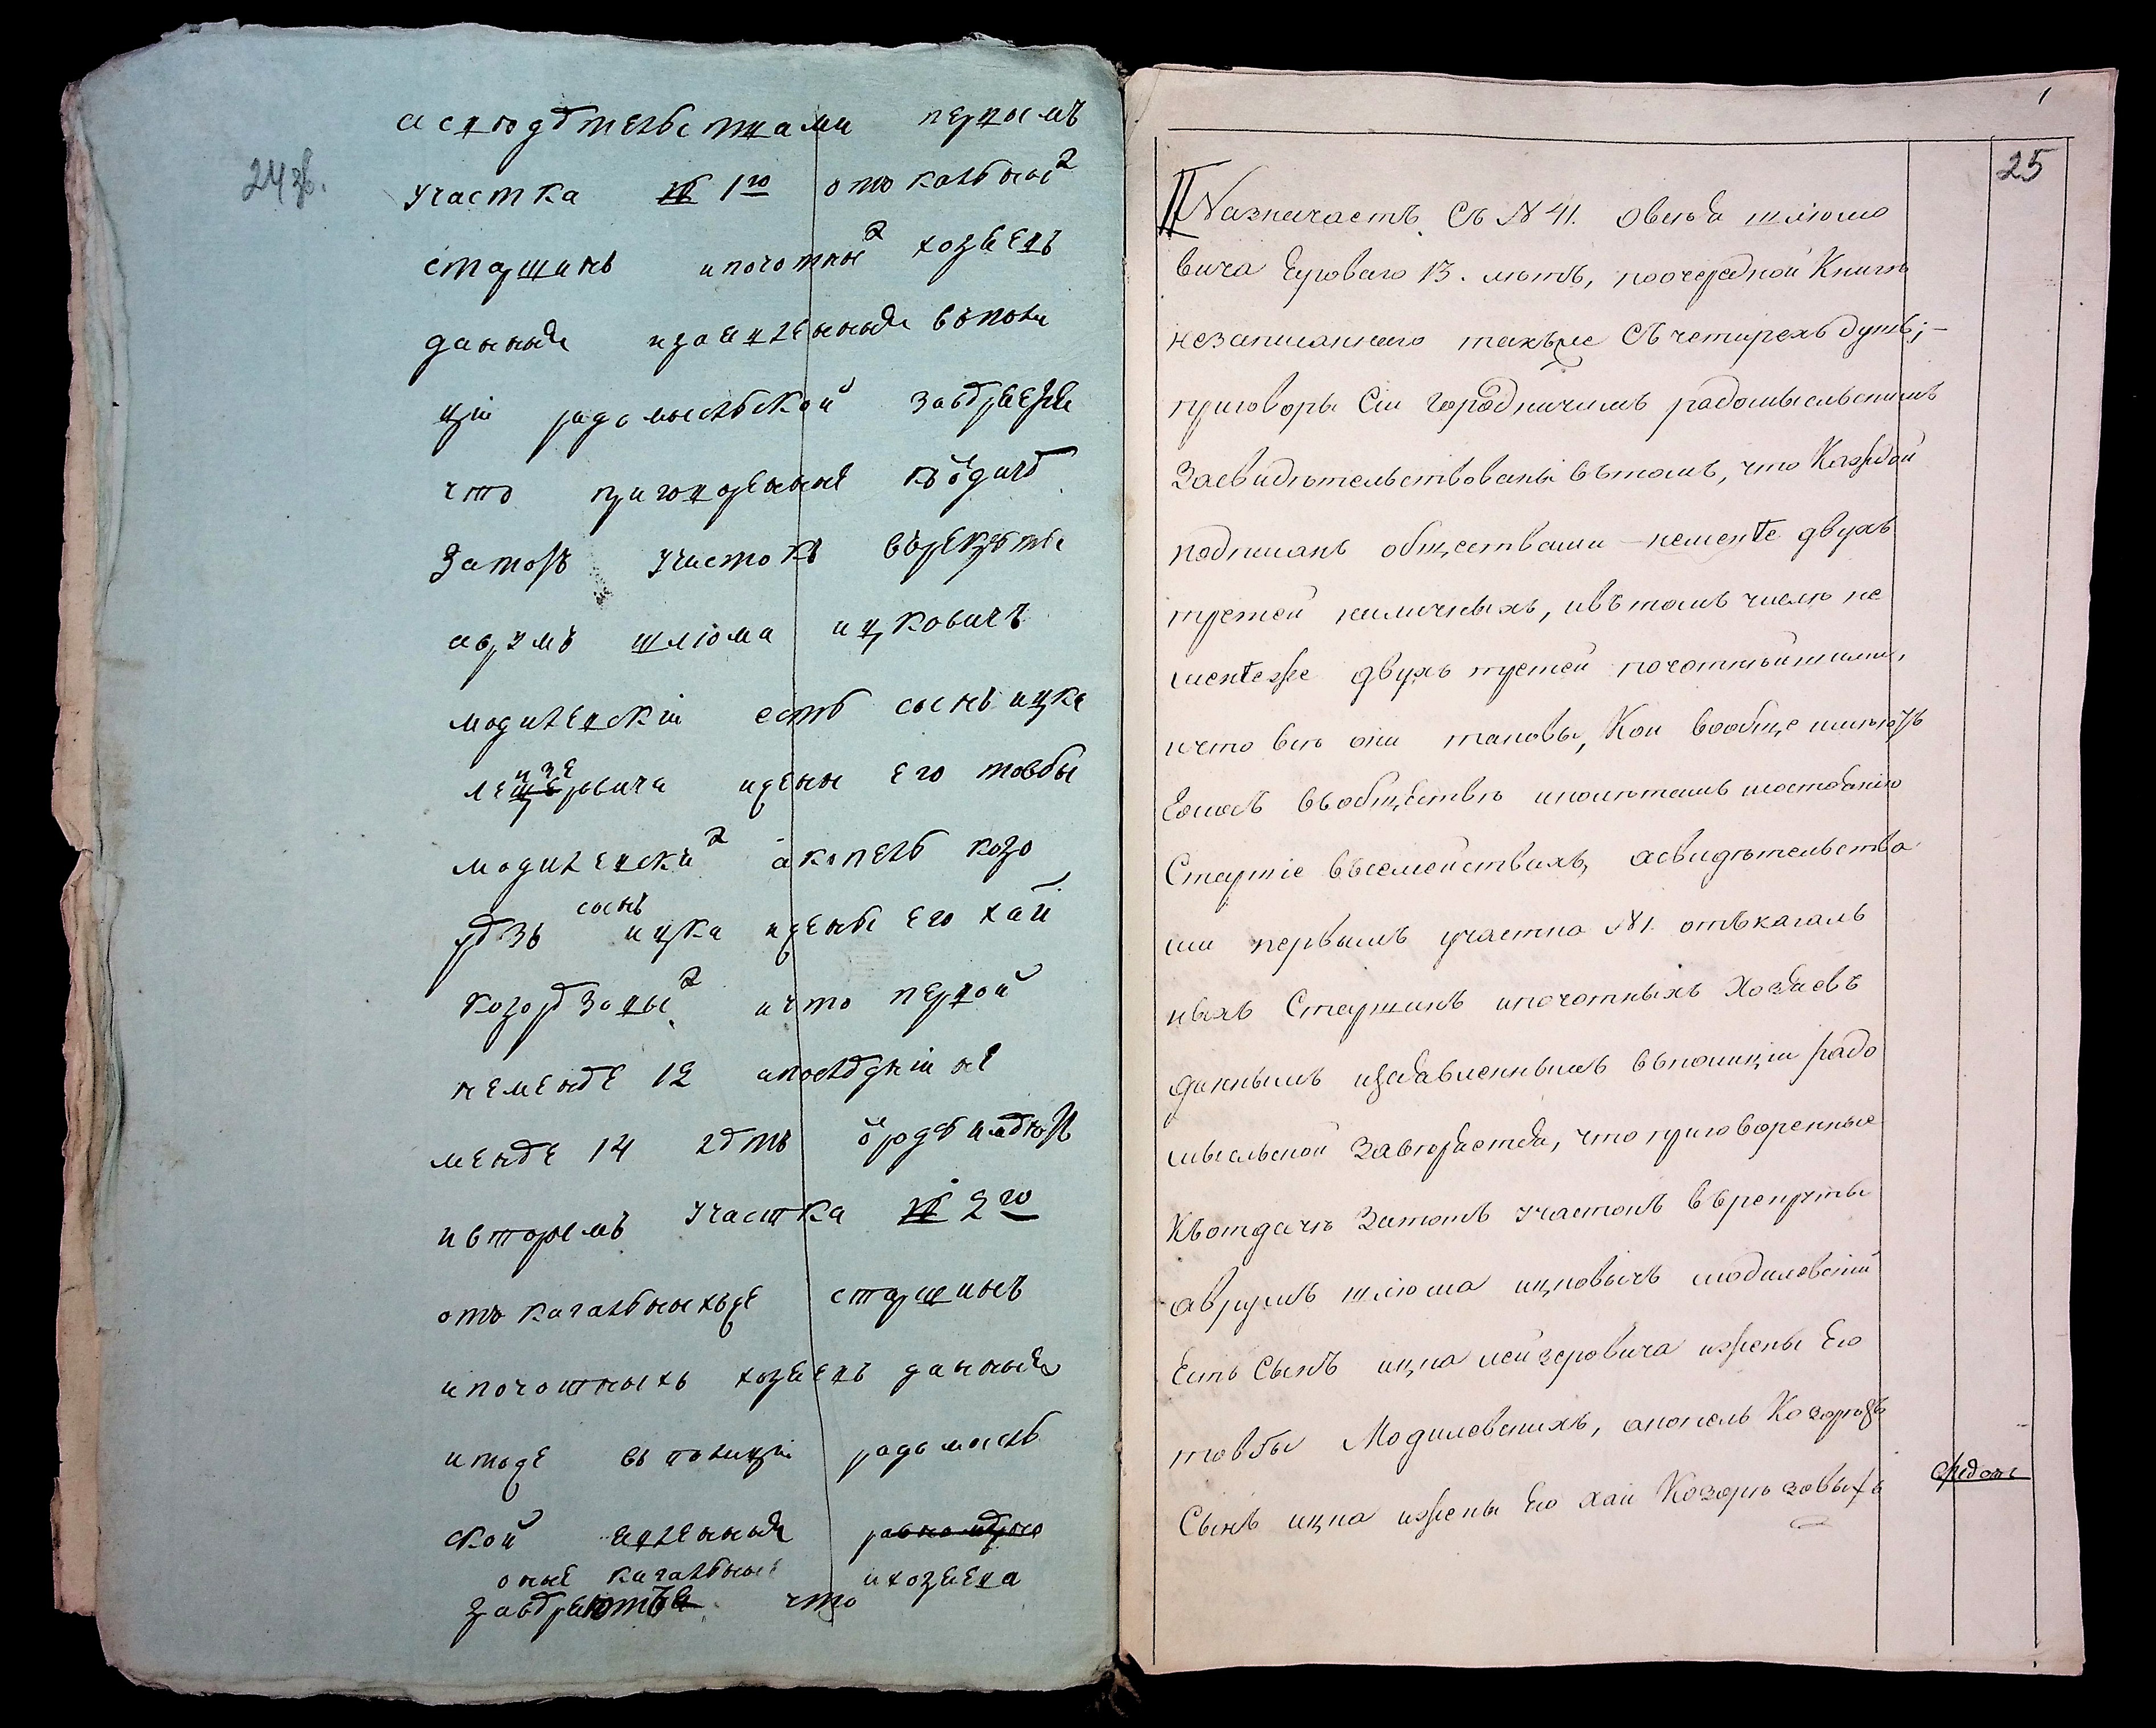 24 зв.
а свѣдѣтельствами первымъ
участка № 1го отъ кагальных
старшинъ и почотных хозяевъ
данныя и заявленныя въ поли
ціи радомысльской завѣряетя
что приговоренныя къ одачѣ
за тотъ участокъ въ рекруты
аврумъ шлiома ицковичъ
модилевскій есть сынъ ицка
лейзеровича и жены его товбы
модилевских а копель козо
рѣзъ сынъ ицка и жены его хаи
козорѣзовых и что первой
не менѣе 12 и послѣдній не
менѣе 14 лѣтъ
и вторымъ участка № 2го
отъ кагальныхъ же старшинъ
и почотныхъ хозяевъ данныя
и тоже въ полиціи радомысль
ской явленныя
оные кагальные и хозяева
завѣряютъ что
25
II Назначаетъ съ N 41. овсея шлiомо
вича Еуроваго 13. лѣтъ, по очередной Книгѣ
незаписаннаго такъже съ четырехъ душъ;—
приговоры сіи городничимъ радомысльскимъ
Засвидѣтельствованы въ томъ, что Каждой
подписанъ обществами — неменѣе двухъ
третей наличныхъ, и въ томъ числѣ не
менѣе же двухъ третей почотнѣйшими,
и что всѣ они таковы, Кои вообще имѣютъ
Голосъ въ обществѣ и по лѣтамъ и состоянію
Старшіе въ семействахъ, а свидѣтельства
ми первымъ участка N 1. отъ кагаль
ныхъ Старшинъ и почотныхъ Хозяевъ
даннымъ и заявленнымъ въ полиціи радо
мысльской завѣряется, что приговоренные
Къ отдачѣ За тотъ участокъ въ рекруты
аврумъ шлiома ицковичъ модилевскій
Есть Сынъ ицка лейзеровича и жены Его
товбы Модилевскихъ, а копель Козорѣзъ
Сынъ ицка и жены Его хаи Козорѣзовыхъ